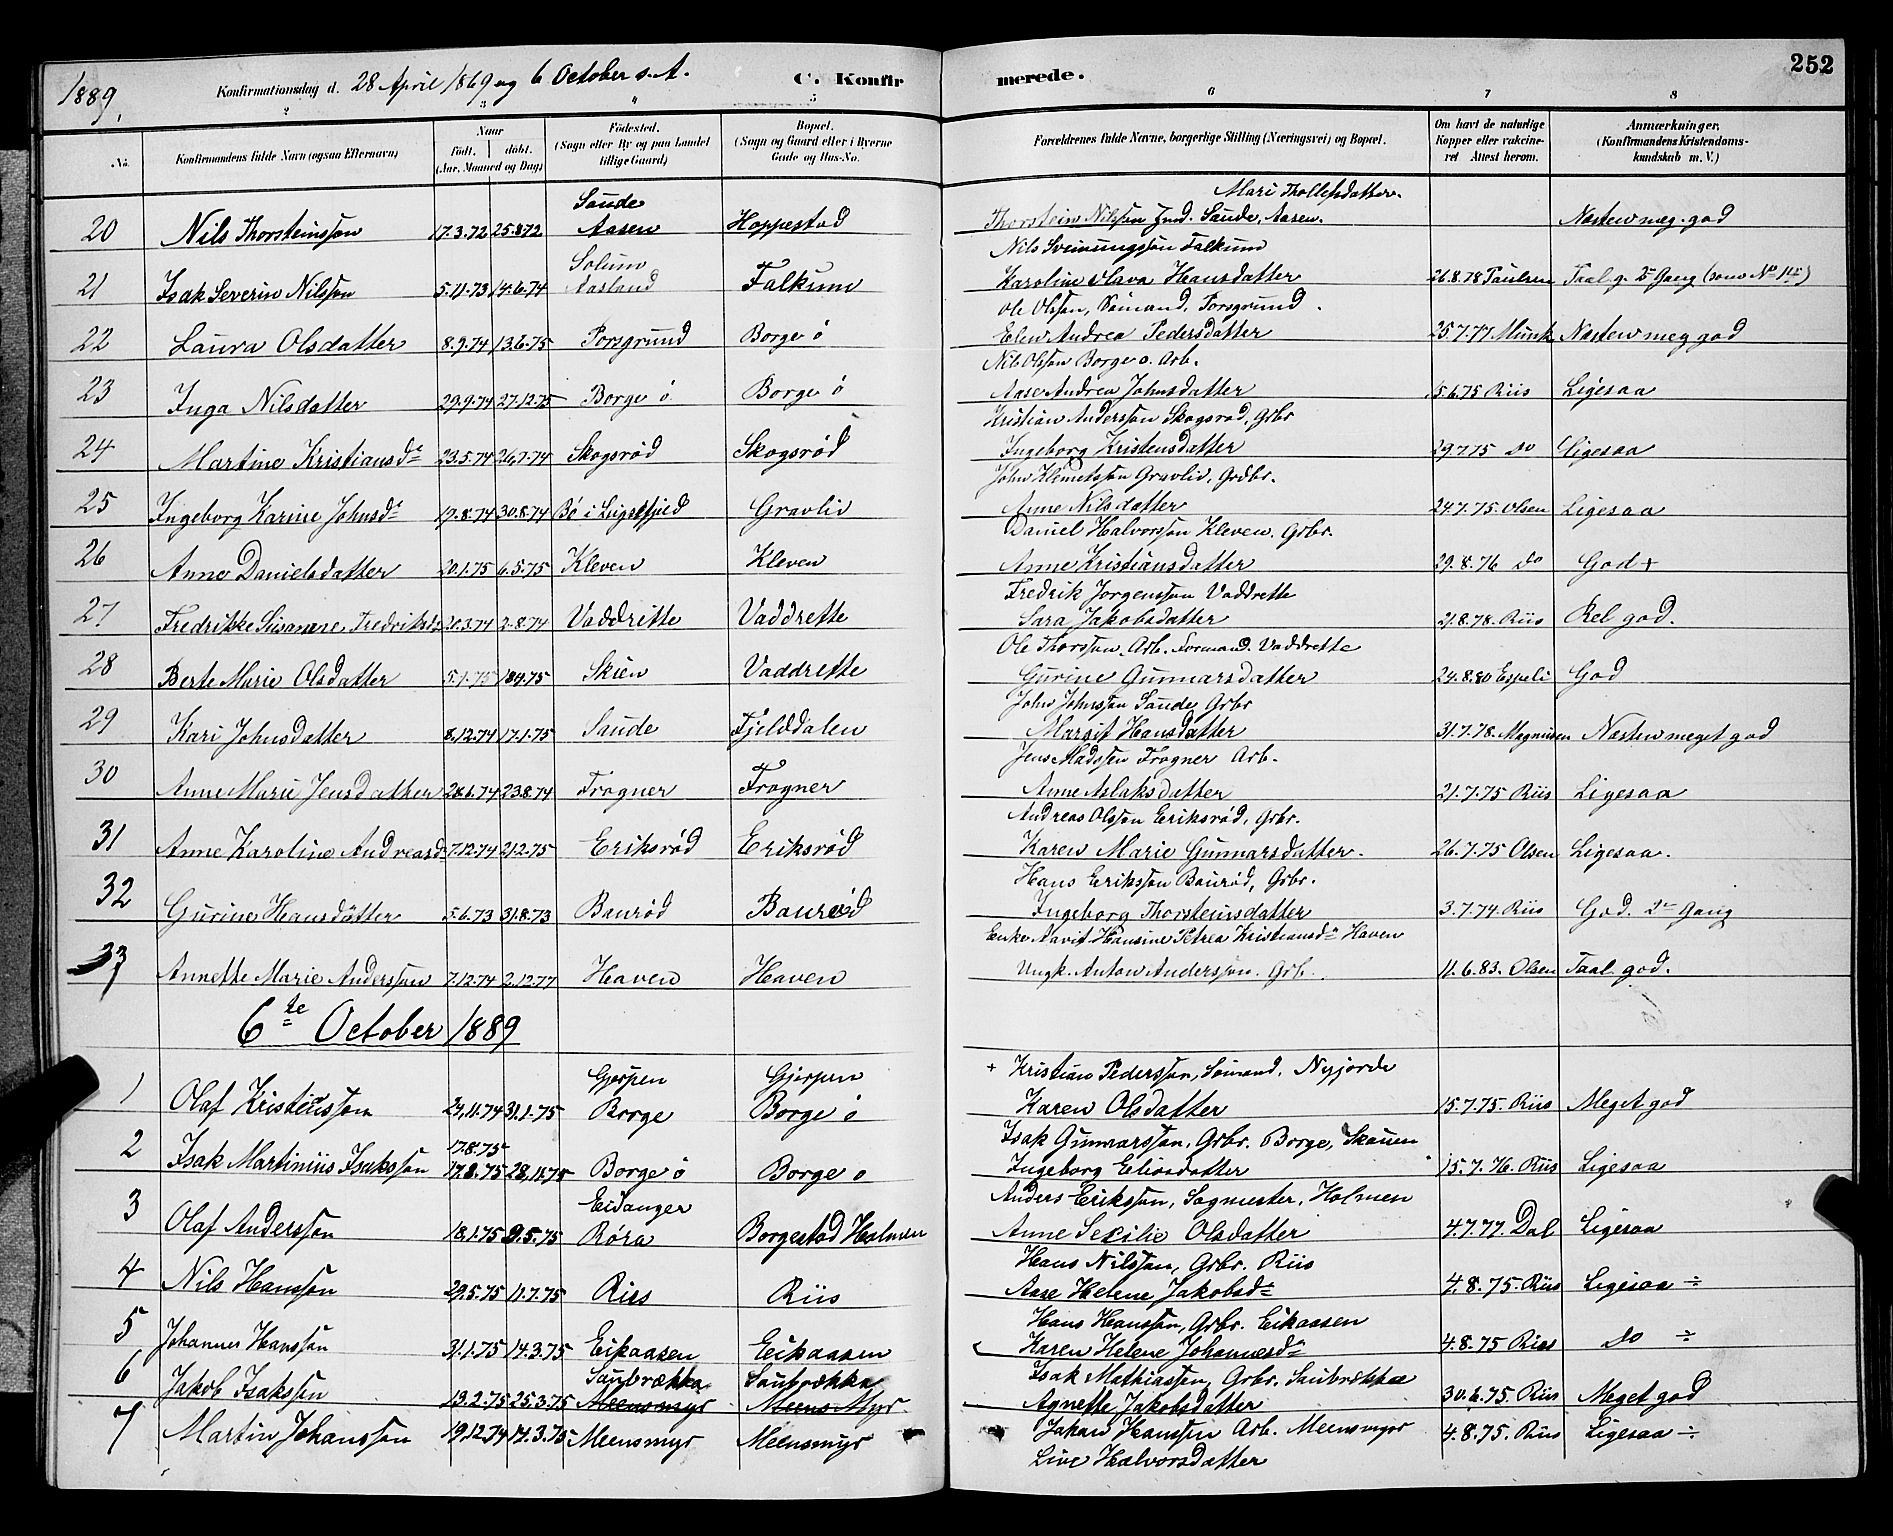 252
1889,
Konfirmationsdag d. 28 April 1869 og 6 October s. A.
C. Konfirmerede.
2 3 4 5 6 7 8
No. Konfirmandens fulde Navn (ogsaa Efternavn) Naar født. døbt. (Aar, Maaned og Dag) Fødested. (Sogn eller By og paa Landet tillige Gaard) Bopæl. (Sogn og Gaard eller i Byerne Gade og Hus-No. Forældrenes fulde Navne, borgerlige Stilling (Næringsvei) og Bopæl. Om havt de naturlige Kopper eller vakcineret Attest herom. Anmærkninger. (Konfirmandens Kristendomskundskab m. V.)
Saude Mari Thollefsdatter.
20 Nils Thorsteinsson 17.3.72 25.8.72 Aasen Hoppestad Thorstein Nilsson Saude, Aasen. Næsten meg. god
Solum Nils Sveinungsson Falkum
21 Isak Severin Nilsson 5.11.73 14.6.74 Aasland Falkum Karoline Hansdatter 26.8.78 Paulsen Taal. g. 2 Gang (som No 14)
Ole Olsson, Sømand, Porsgrund.
22 Laura Olsdatter 8.9.74 13.6.75 Porsgrund Borge ö Elen Andrea Pedersdatter 25.7.77 Munk Næsten meg god
Nils Olsson Borge ö. Arb.
23 Inga Nilsdatter 29.9.74 27.12.75 Borge ö Borge ö Aase Andrea Johnsdatter 15.6.75 Riis Ligesaa
Kristian Andersson Skogsrød, Grbr
24 Martine Kristiansd. 23.5.74 26.7.74 Skogsrød Skogsrød Ingeborg Kristensdatter 29.7.75 Do Ligesaa
John Klemetsson Gravliv, Grdbr.
25 Ingeborg Karine Johnsd. 19.8.74 30.8.74 Bö i Gravliv Anne Nilsdatter 24.7.75. Olsen Ligesaa
Daniel Halvorsson Kleven. Grbr.
26 Anne Danielsdatter 20.1.75 6.5.75 Kleven Kleven Anne Kristiansdatter 29.8.76 Do God +
Fredrik Jorgensson Vaddrette
27 Fredrikke Susanne Fredriksd 20.3.74 2.8.74 Vaddrette Vaddrette Sara Jakobsdatter 21.8.78. Riis Rel god.
Ole Thorsson. Arb. Formand. Vaddrette
28 Berte Marie Olsdatter 5.1.75 18.4.75 Skien Vaddrette Gurine Gunnarsdatter 24.8.80 Espeli God
John Johnsson Saude, Grbr
29 Kari Johnsdatter 8.12.74 17.1.75 Saude Fjelddalen Margit Hansdatter 31.7.78. Magnusen Næsten meget god
Jens Madssen Frogner Arb.
30 Anne Marie Jensdatter 28.6.74 23.8.74 Frogner Frogner Anne Aslaksdatter 21.7.75 Riis Ligesaa
Andreas Olsson Eriksrød, Grbr.
31 Anne Karoline Andreasd 7.12.74 21.2.75 Eriksrød Eriksrød Karen Marie Gunnarsdatter. 26.7.75 Olsen Ligesaa.
Hans Eriksson Baurød, Grbr.
32 Gurine Hansdatter 5.6.73 31.8.73 Baurød Baurød Ingeborg Thorsteinsdatter 3.7.74. Riis God. 2 Gang
Enke Hansine Petrea Kristiansd. Haven
33 Annette Marie Andersson 7.12.74 2.12.77 Haven Haven Ungk. Anton Andersson. Grb. 11.6.83. Olsen Taal. god.
6te October 1889
Gjerpen Gjerpen + Kristian Pedersson, Sømand. Nyjorde
1 Olaf Kristiansson 24.11.74 31.1.75 Borge Borge ö Karen Olsdatter 15.7.75. Riis Meget god
17.8.75 Isak Gunnarsson, Grbr. Borge, Skauen
2 Isak Martinius Isaksson 17.8.75 28.11.75 Borge ö Borge ö Ingeborg Eliasdatter 15.7.76. Riis Ligesaa
Eidanger Anders Eriksson, Sagmester, Holmen
3 Olaf Andersson 18.1.75 9.5.75 Röra Borgestad Holmen Anne Sesilie Olsdatter 4.7.77. Dal Ligesaa
Hans Nilsson, Grbr. Riis
4 Nils Hansson 29.5.75 11.7.75 Riis Riis Aase Helene Jakobsd. 4.8.75. Riis Ligesaa ÷
Hans Hansson, Grbr. Eikaasen
5 Johannes Hansson 31.1.75 14.3.75 Eikaasen Eikaasen Karen Helene Johannesd. 4.8.75 Riis Do ÷
Saubrækka Saubrækka Isak Mathiassen, Grbr. Saubrækka
6 Jakob Isaksson 13.2.75 25.3.75 Meensmyr Meens Myr. Agnette Jakobsdatter 30.6.75. Riis Meget god
7 Martin Johansson 19.12.74 14.3.75 Meensmyr Meensmyr Johan Hanssen Arb. Meensmyr 4.8.75. Riis Ligesaa ÷
Live Halvorsdatter